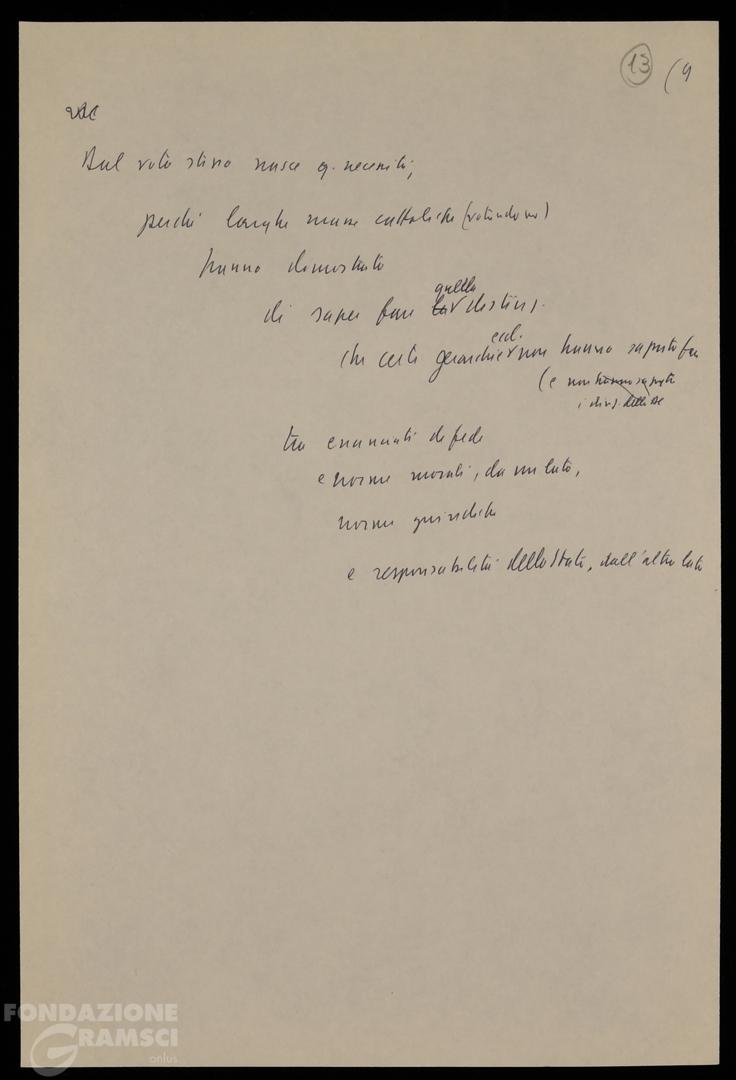 13 (9
Dal voto stesso nasce q. necessità,
perché larghe masse cattoliche (votando no)
hanno dimostrato
di saper fare la quella distinz.
che certe gerarchie eccl. non hanno saputo fare
(e non hanno saputo
i dirig. della DC
tra enunciati di fede
e norme morali, da un lato,
norme giuridiche
e responsabilità dello Stato, dall'altro lato
FONDAZIONE
GRAMSCI
onlus